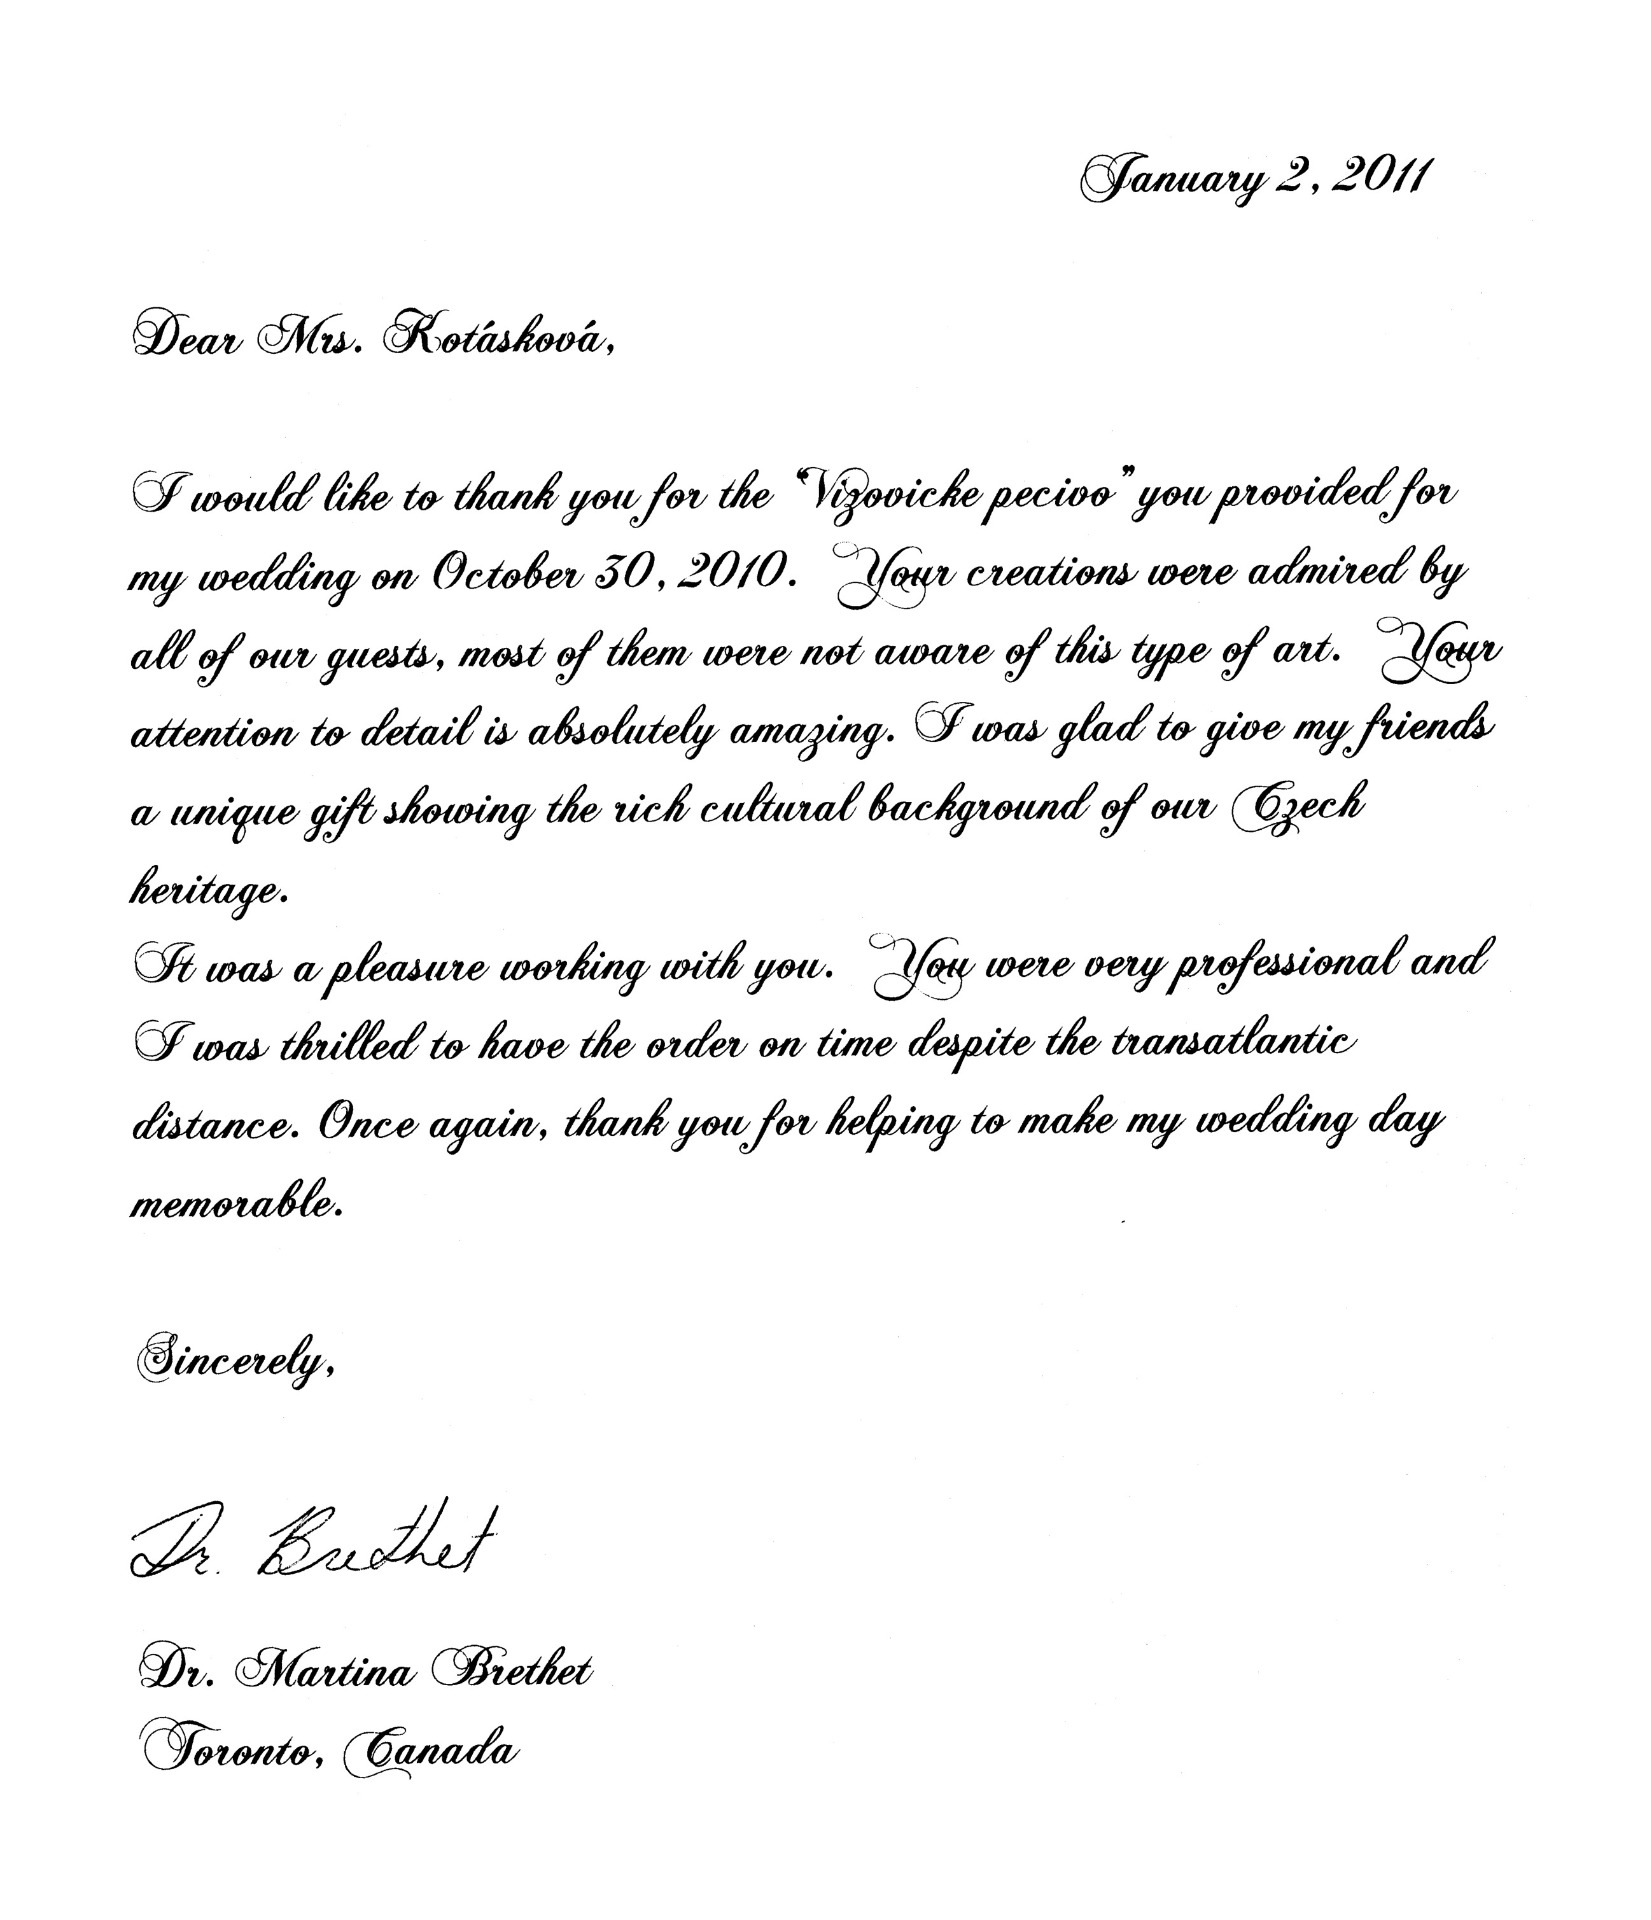 January 2, 2011
Dear Mrs. Kotásková,
I would like to thank you for the "Vizovicke pecivo" you provided for
my wedding on October 30, 2010. Your creations were admired by
all of our guests, most of them were not aware of this type of art. Your
attention to detail is absolutely amazing. I was glad to give my friends
a unique gift showing the rich cultural background of our Czech
heritage.
It was a pleasure working with you. You were very professional and
I was thrilled to have the order on time despite the transatlantic
distance. Once again, thank you for helping to make my wedding day
memorable.
Sincerely,
Dr. Brethet
Dr. Martina Brethet
Toronto, Canada